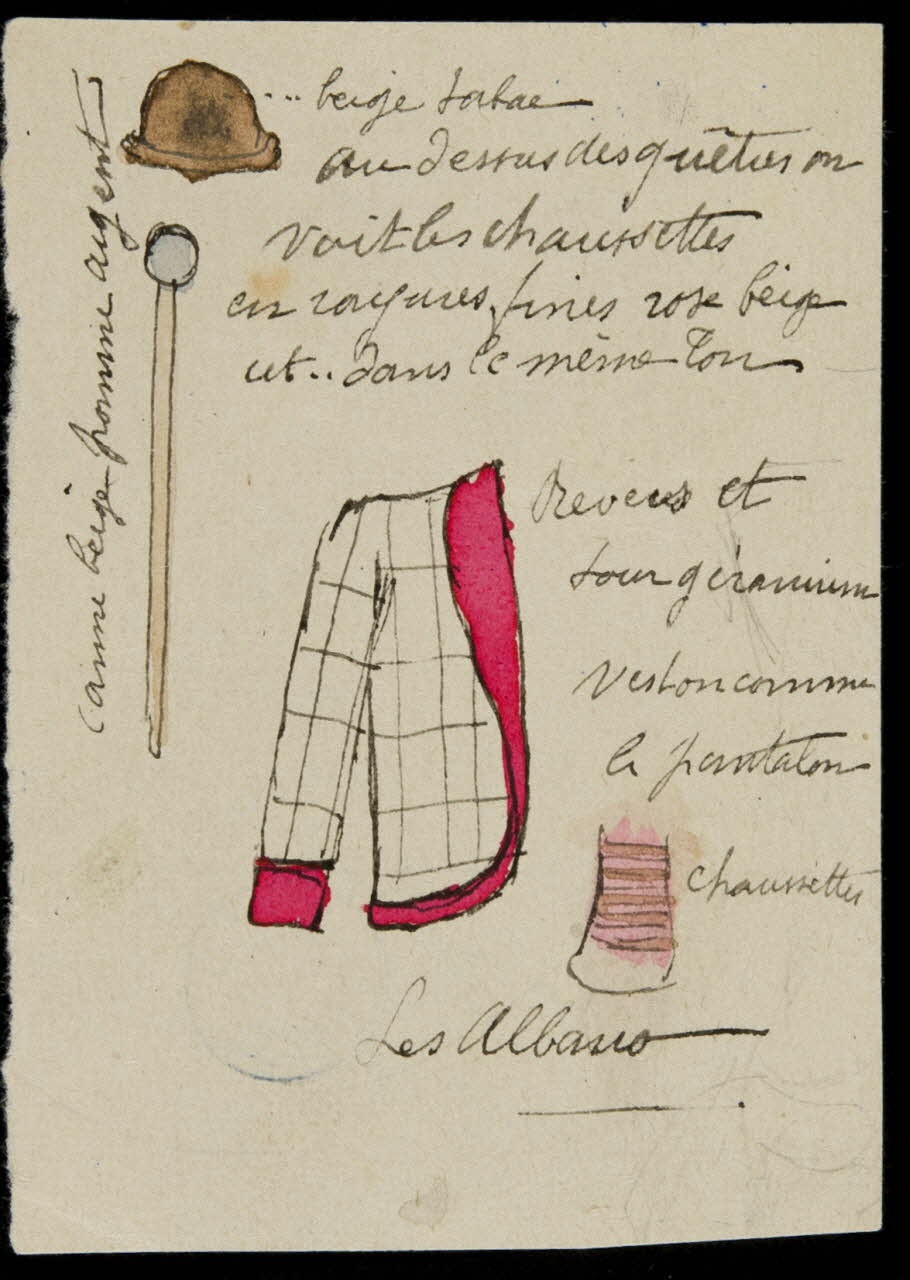 ... beige tabac
au dessus des guêtres on
voit les chaussettes
en rayures fines rose beige
et.. dans le même ton
canne beige pomme argent
Revers et
tour géranium
veston comme
le pantalon
chaussettes
Les Albano